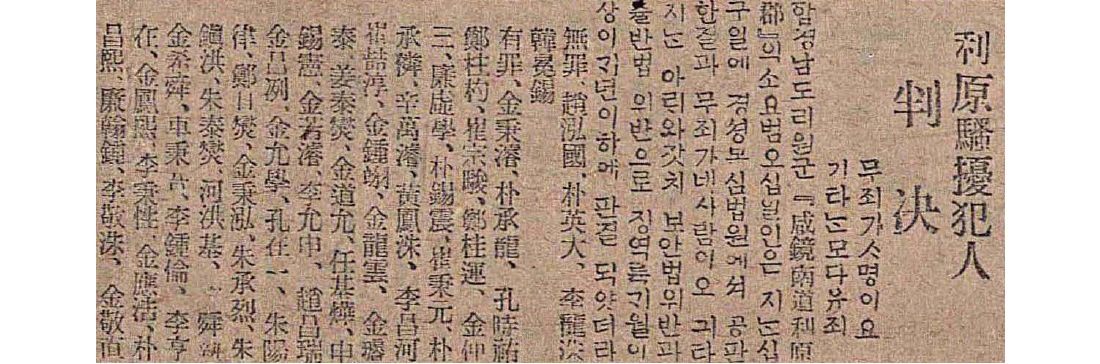 利原騷擾犯人
判決
무죄가 ㅅ명이요
기타는모다유죄
함경남도리원군『咸鏡南道利原
郡』의소요범오십일인은 지는십
구일에 경성복심법원에서 공판
한결과 무죄가네사람이오 기타
지는 아리와갓치 보안법위반과
출반법 위반으로 징역륙기월이
상이기년이하에 판결 되얏더라
無罪、趙泓國、朴英大、李龍深
韓冕錫
有罪、金秉濬、朴承龍、孔時祐
鄭柱杓、崔宗駿、鄭桂運、金仲
三、廉虛學、朴錫震、崔秉元、朴
承鱗、辛萬濬、黃鳳洙、李昌河
崔喆淳、金鍾翊、金龍雲、金璿
泰、姜泰燮、金道允、任基樺、申
錫憲、金若濬、李允中、趙昌瑞
金昌冽、金允學、孔在一、朱陽
律、鄭日燮、金秉泓、朱承烈、朱
鎭洪、朱泰燮、河洪基、舜
金希舜、車秉、李鍾倫、李亨
在、金鳳熙、李秉性、金應活、朴
昌熙、廉翰鍾、李敬洙、金敬直